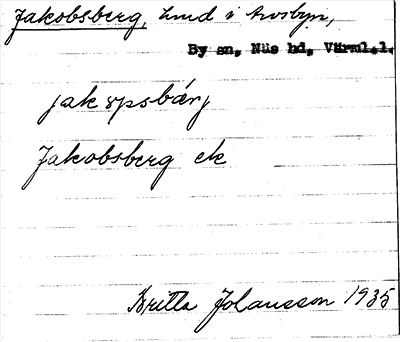 Jakobsberg, hmd i Årosbyn,
By sn, Näs hd, Värml.l.
jakɔpsbærj
Jakobsberg ek
Britta Johansson 1935